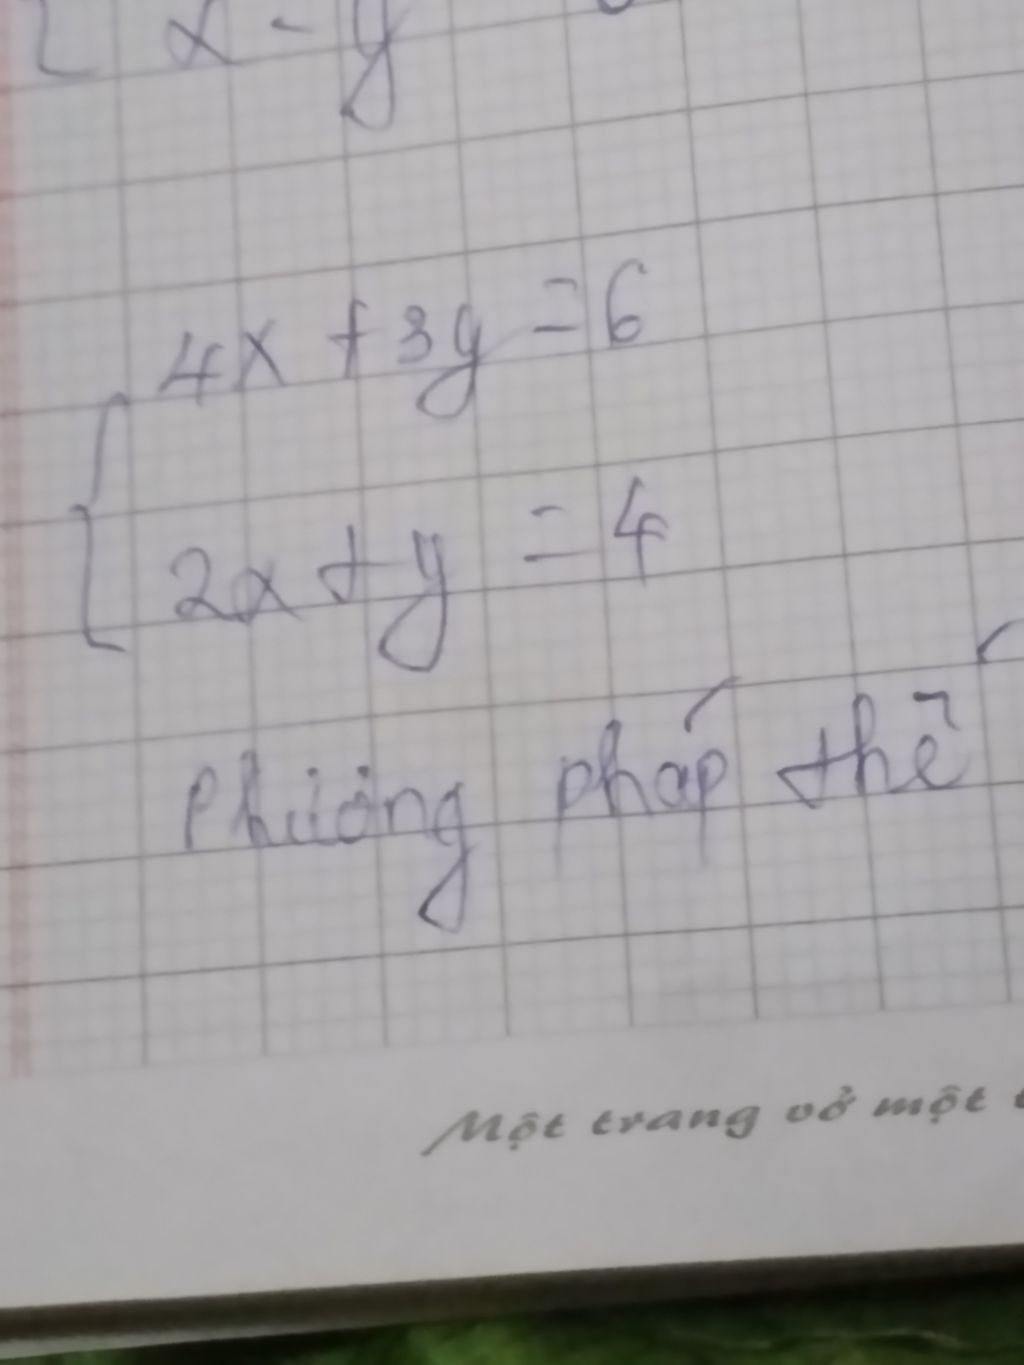 x - y
4x + 3y = 6
2x + y = 4
Phương pháp thế
Một trang vở một